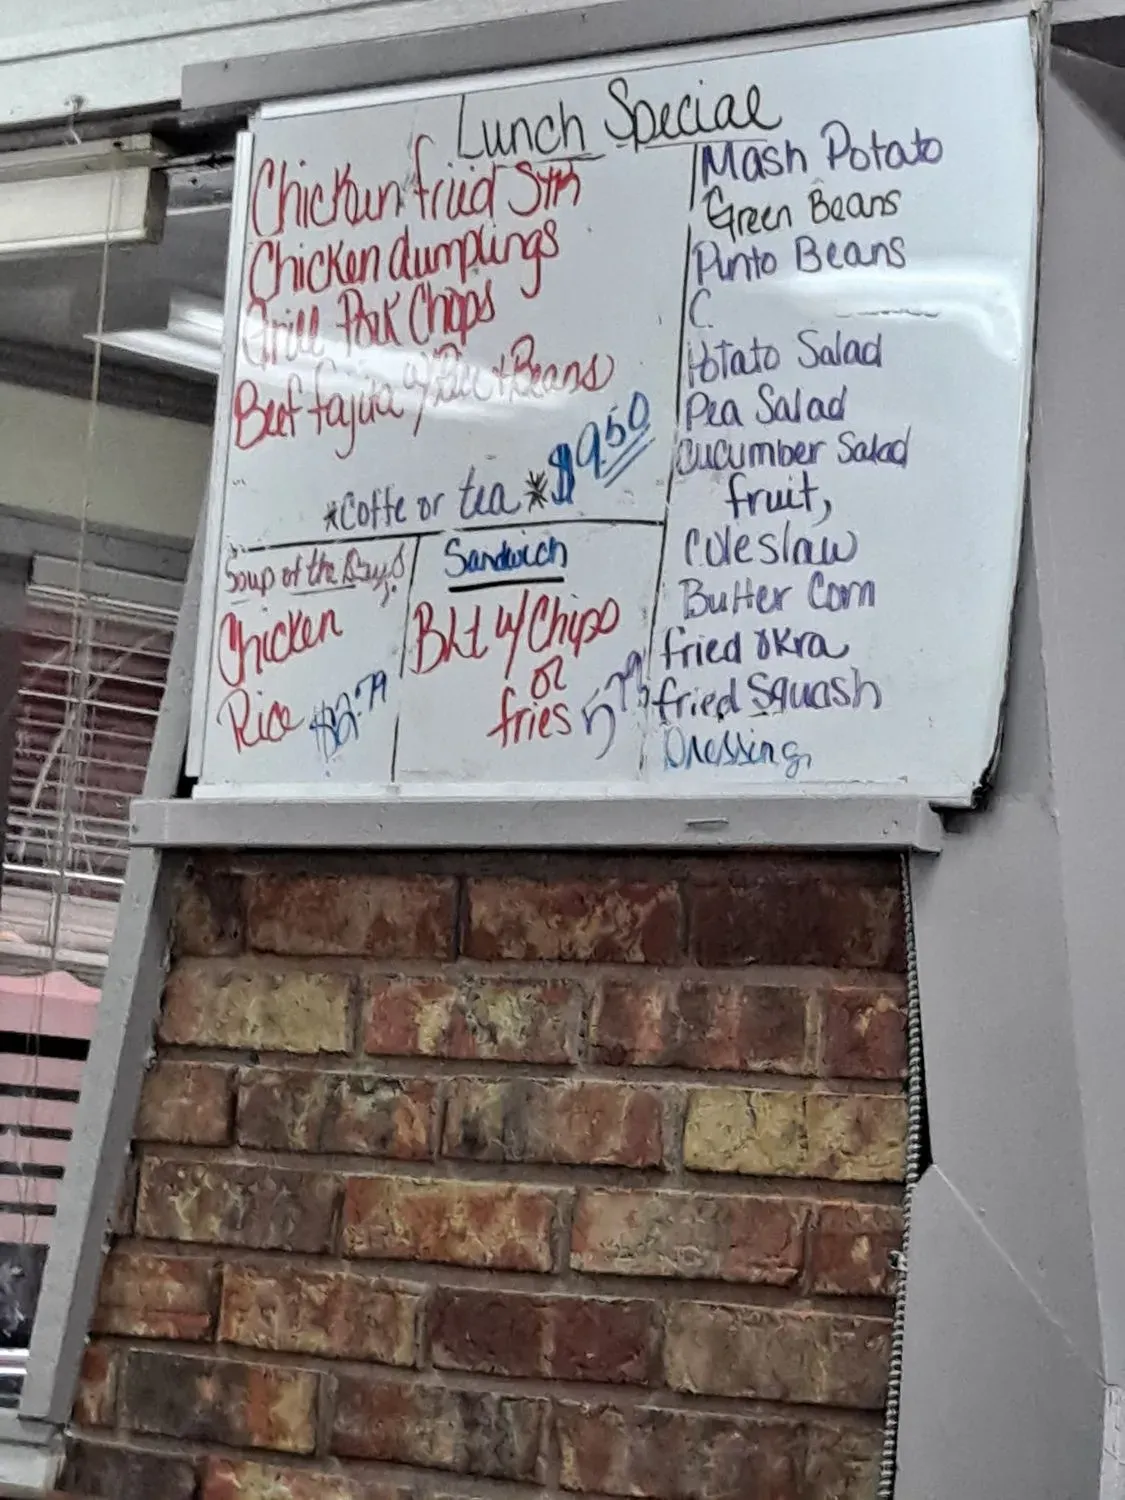 Lunch Special
Chicken fried Stk
Chicken dumplings
Grill Pork Chops
Beef fajita w/ Rice + Beans
$9.50
*Coffe or tea*
Soup of the Day!
Chicken
Rice $2.79
Sandwich
Blt w/ Chips
or
fries 5.79
Mash Potato
Green Beans
Pinto Beans
C
Potato Salad
Pea Salad
Cucumber Salad
fruit,
Coleslaw
Butter Corn
fried okra
fried Squash
Dressing